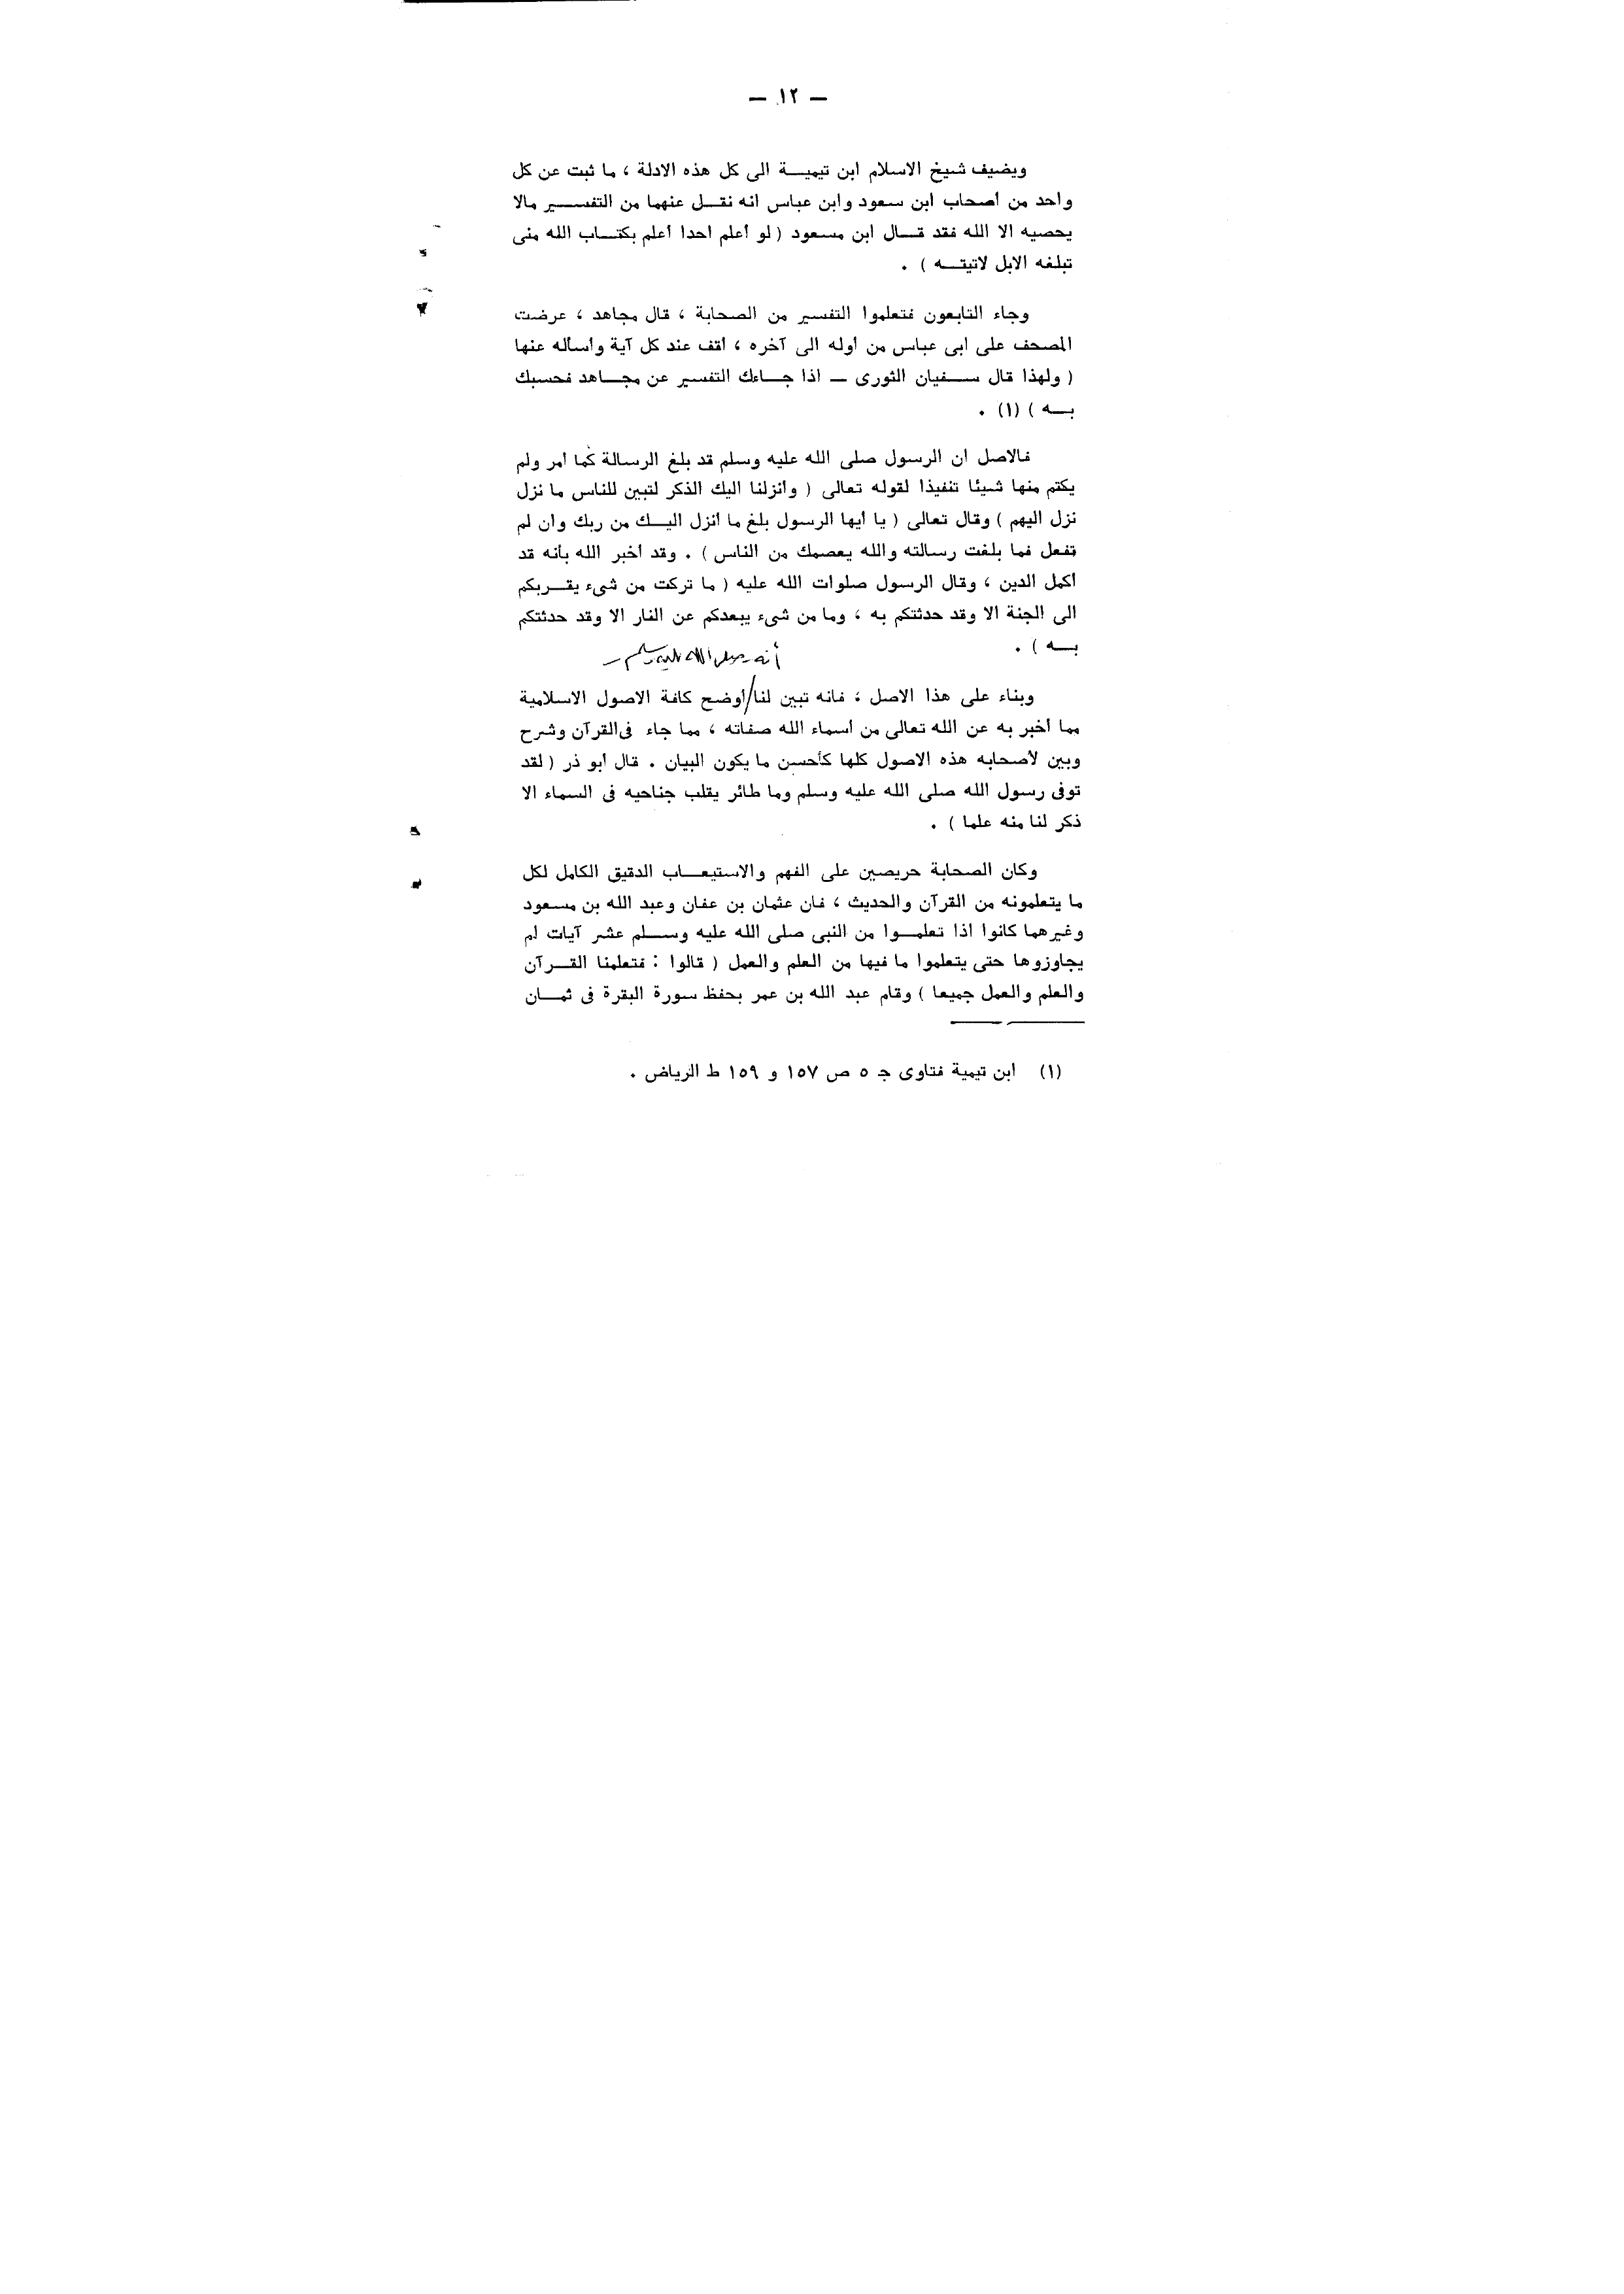 — ١٢ —
ويضيف شيخ الاسلام ابن تيميـــة الى كل هذه الادلة ، ما ثبت عن كل
واحد من أصحاب ابن سعود وابن عباس انه نقـــل عنهما من التفســـــير مالا
يحصيه الا الله فقد قـــال ابن مسعود ( لو أعلم احدا أعلم بكتـــاب الله منى
تبلغه الابل لاتيتـــه ) .
وجاء التابعون فتعلموا التفسير من الصحابة ، قال مجاهد ، عرضت
المصحف على ابى عباس من أوله الى آخره ، أقف عند كل آية وأسأله عنها
( ولهذا قال ســـفيان الثورى — اذا جـــاءك التفسير عن مجـــاهد فحسبك
بـــه ) (١) .
فالاصل ان الرسول صلى الله عليه وسلم قد بلغ الرسالة كما أمر ولم
يكتم منها شيئا تنفيذا لقوله تعالى ( وأنزلنا اليك الذكر لتبين للناس ما نزل
نزل اليهم ) وقال تعالى ( يا أيها الرسول بلغ ما أنزل اليـــك من ربك وان لم
تفعل فما بلغت رسالته والله يعصمك من الناس ) . وقد أخبر الله بأنه قد
أكمل الدين ، وقال الرسول صلوات الله عليه ( ما تركت من شىء يقـــربكم
الى الجنة الا وقد حدثتكم به ، وما من شىء يبعدكم عن النار الا وقد حدثتكم
بـــه ) .
أنه صلى الله عليه وسلم
وبناء على هذا الاصل ، فانه تبين لنا/أوضح كافة الاصول الاسلامية
مما أخبر به عن الله تعالى من أسماء الله صفاته ، مما جاء فى القرآن وشرح
وبين لأصحابه هذه الاصول كلها كأحسن ما يكون البيان . قال أبو ذر ( لقد
توفى رسول الله صلى الله عليه وسلم وما طائر يقلب جناحيه فى السماء الا
ذكر لنا منه علما ) .
وكان الصحابة حريصين على الفهم والاستيعـــاب الدقيق الكامل لكل
ما يتعلمونه من القرآن والحديث ، فان عثمان بن عفان وعبد الله بن مسعود
وغيرهما كانوا اذا تعلمـــوا من النبى صلى الله عليه وســـلم عشر آيات لم
يجاوزوها حتى يتعلموا ما فيها من العلم والعمل ( قالوا : فتعلمنا القـــرآن
والعلم والعمل جميعا ) وقام عبد الله بن عمر بحفظ سورة البقرة فى ثمـــان
(١) ابن تيمية فتاوى جـ ٥ ص ١٥٧ و ١٥٩ ط الرياض .